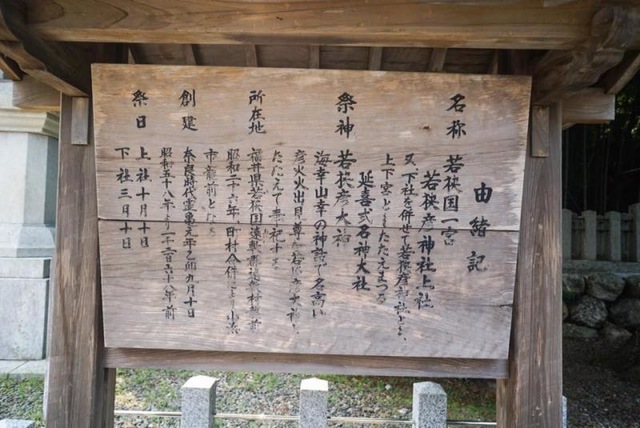 由緒記
名称 若狭国一宮
若狭彦神社上社
又、下社を併せて若狭彦神社とも
上下宮ともたたえまつる
延喜式名神大社
祭神 若狭彦大神
海幸山幸の神話で名高い
彦火火出見尊を若狭彦大神と
たたえて奉祀す
所在地 福井県若狭国遠敷郡遠敷村龍前
昭和二十六年 町村合併により小浜
市龍前となる
創建 奈良時代霊亀元年乙卯九月十日
昭和五十八年より一千二百六十八年前
祭日 上社十月十日
下社三月十日